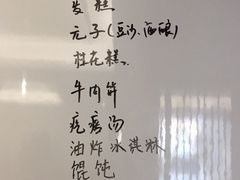 发糕
元子(豆沙.酒酿)
桂花糕.
牛肉饼
疙瘩汤
油炸冰淇淋
馄饨